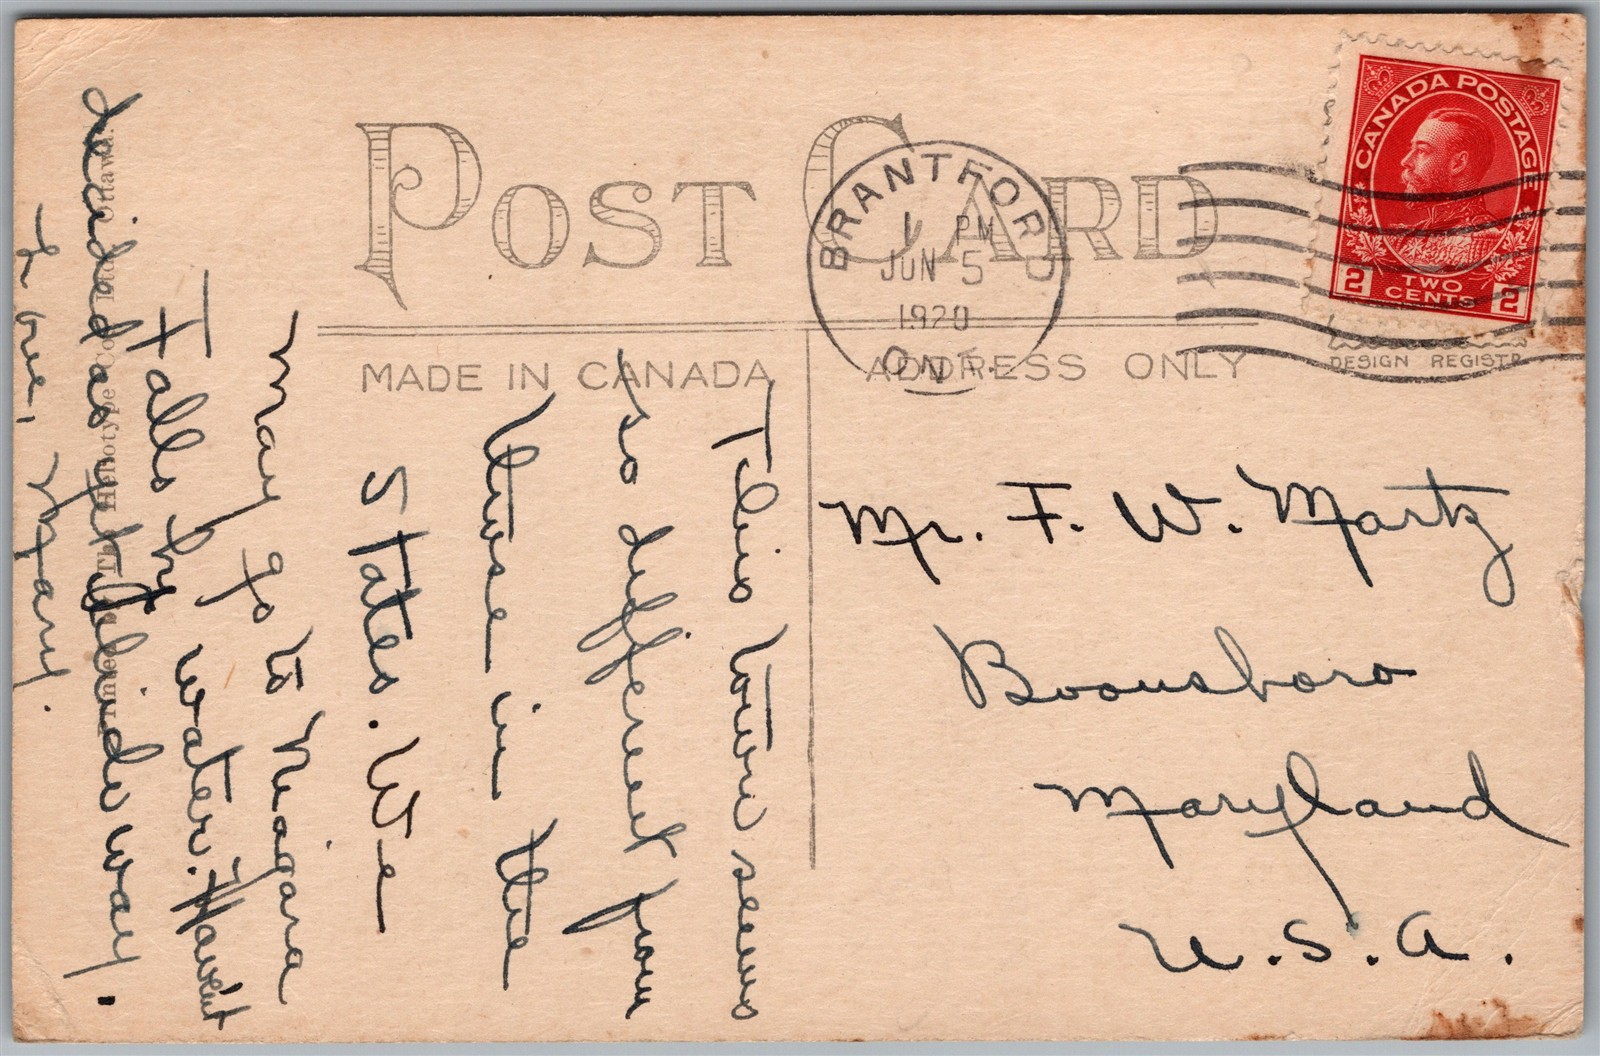 POST CARD
BRANTFORD
1 PM
JUN 5
1920
ONT.
CANADA POSTAGE
2 TWO CENTS 2
MADE IN CANADA
ADDRESS ONLY
DESIGN REGISTR
Mr. F. W. Martz
Boonsboro
Maryland
U.S.A.
This town seems
so different from
those in the
States. We
may go to Niagara
Falls by water. Haven't
decided as yet
way.
Love, Mary.
Heliotype Co. Ottawa.